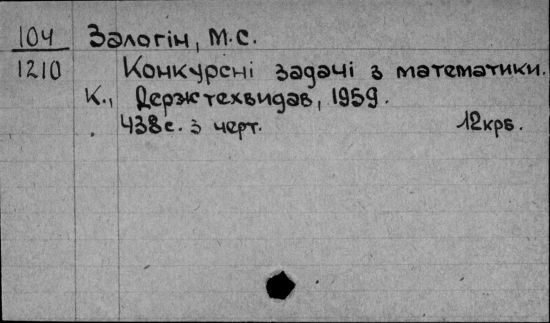 104 Залогін, М.С.
1210 Конкурсні задачі з математики.
К., Держтехвидав, 1959.
438с. з черт. 12крб.